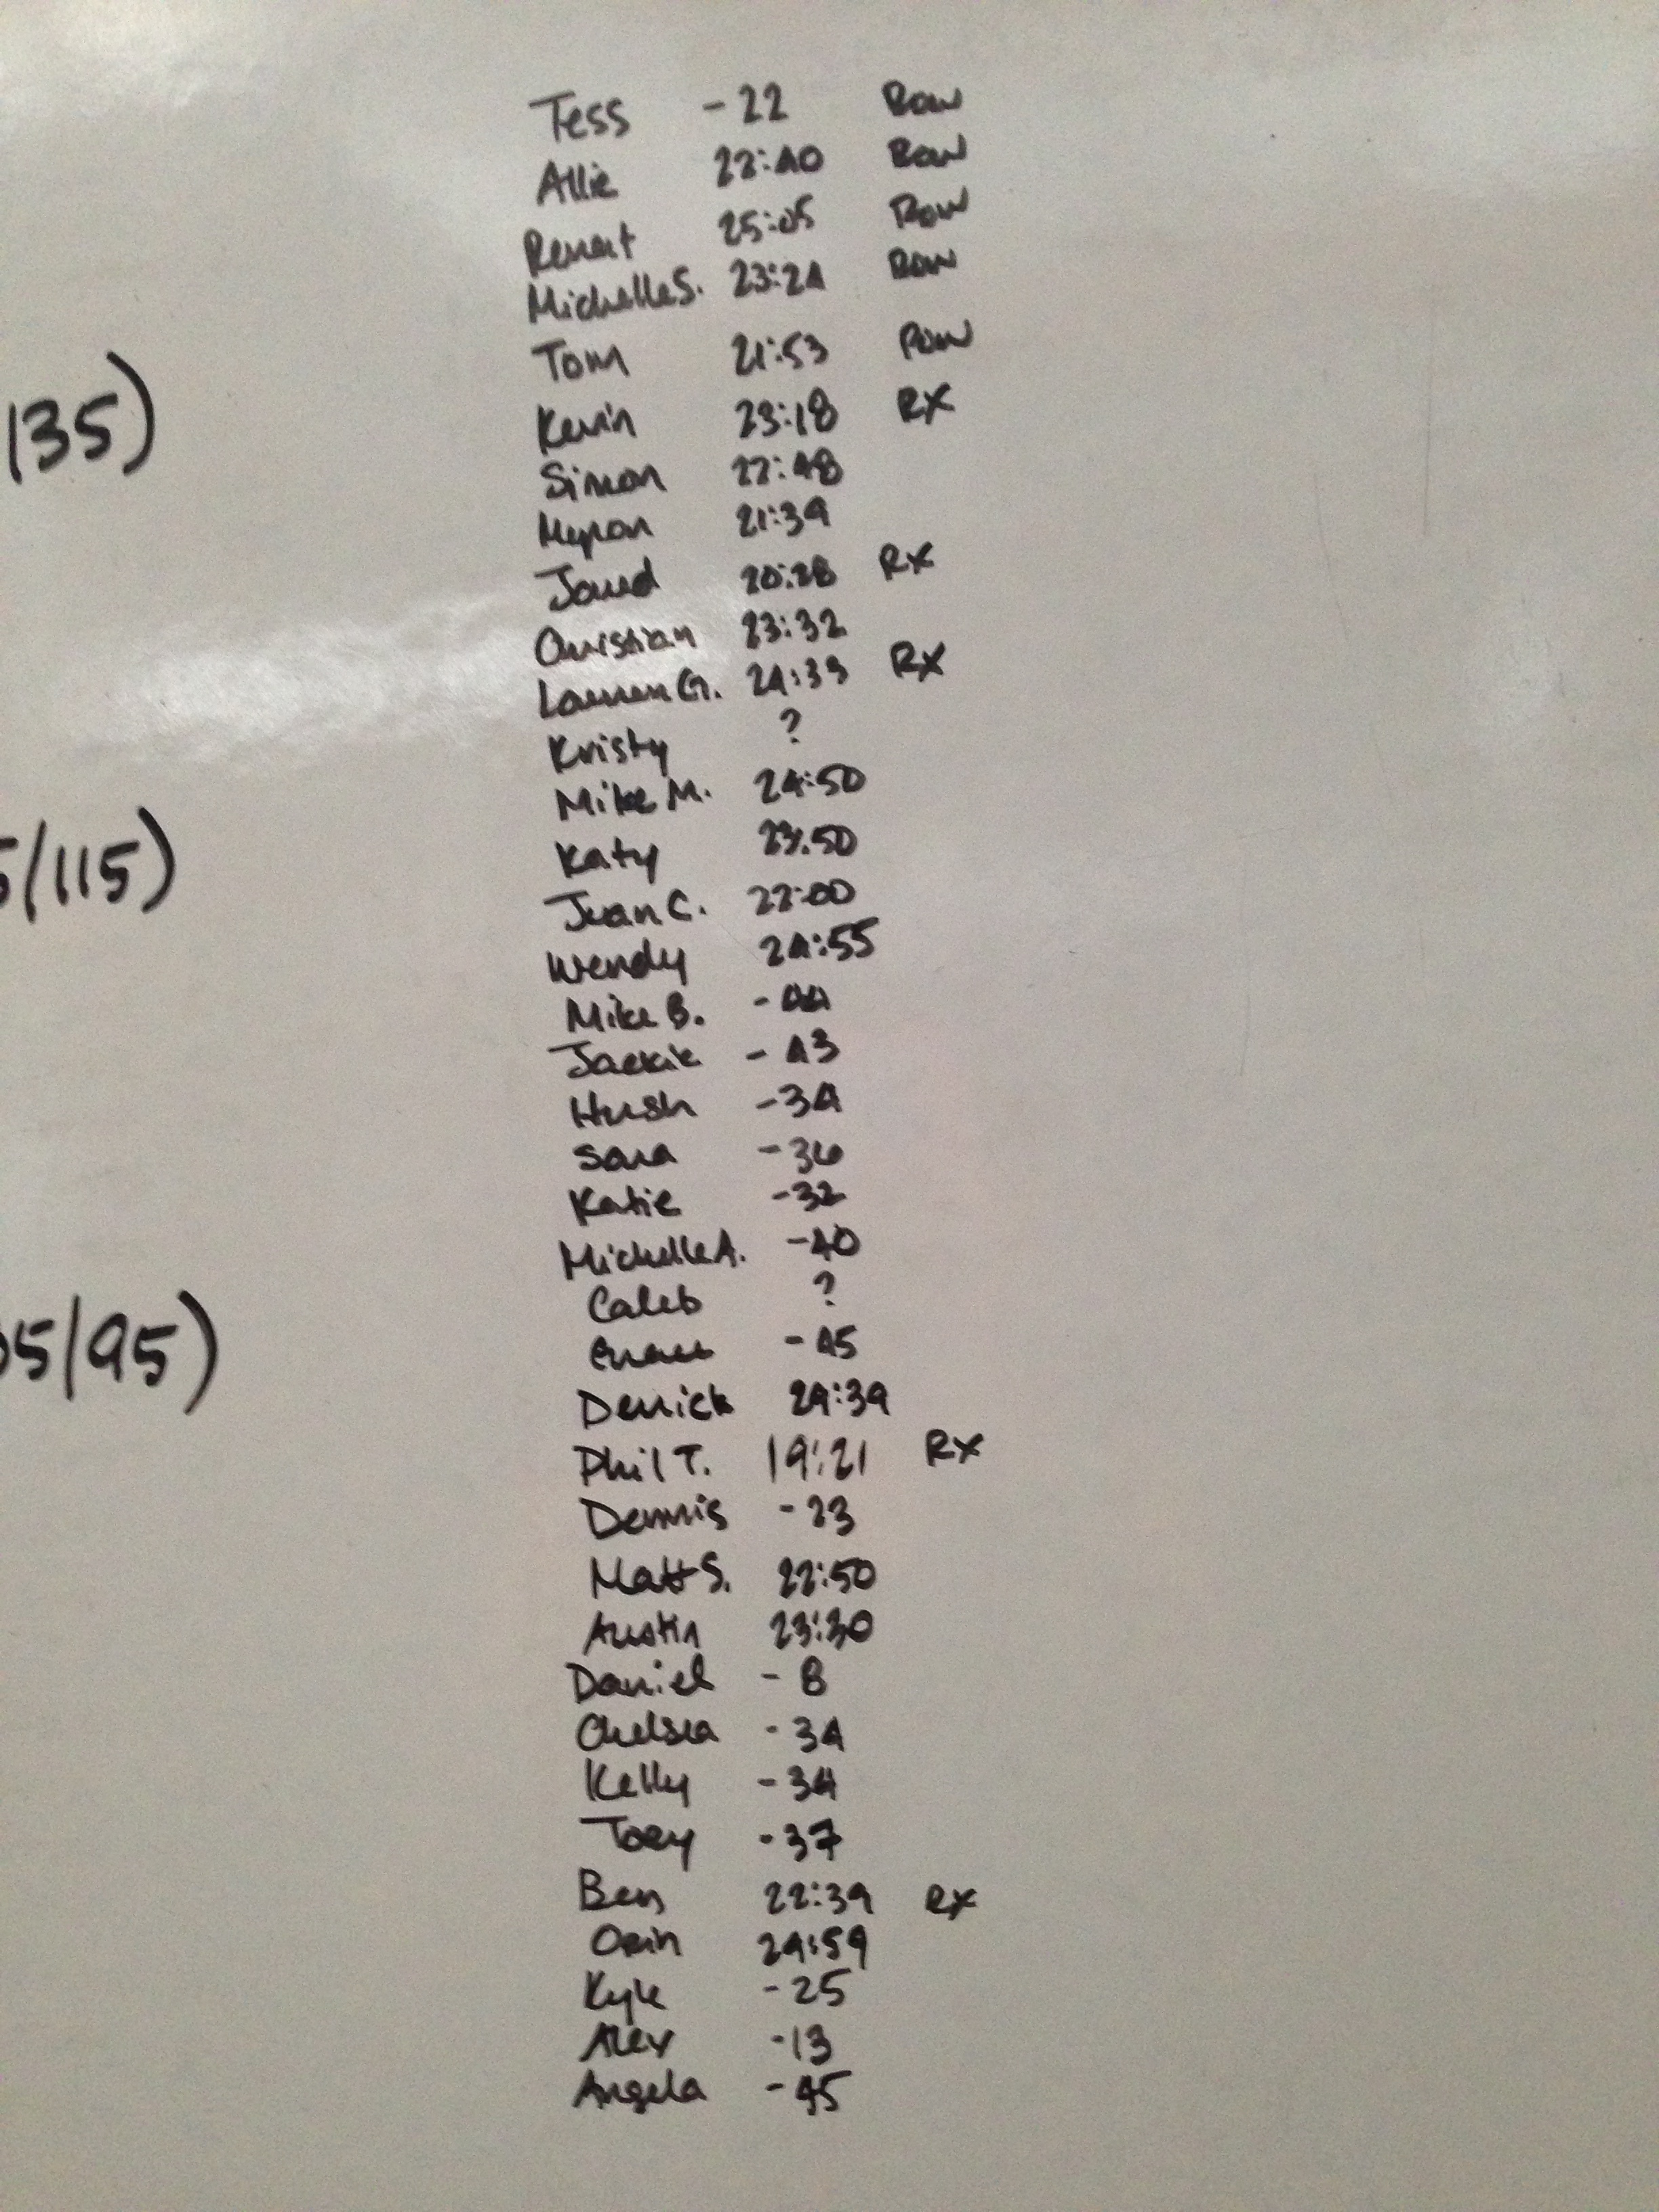 Tess -22 Row
Allie 22:40 Row
25:05 Row
Michelle S. 23:24 Row
Tom 21:53 Row
Kevin 23:18 RX
Simon 22:48
Myron 21:39
Jared 20:28 RX
Christian 23:32
Lauren G. 24:33 RX
Kristy ?
Mike M. 24:50
Katy 23:50
Juan C. 22:00
Wendy 24:55
Mike B. -44
Jackie -43
Hush -34
Sara -36
Katie -32
Michelle A. -40
Caleb ?
-45
Derrick 24:39
Phil T. 19:21 RX
Dennis -23
Matt S. 22:50
Austin 23:30
Daniel -8
Chelsea -34
Kelly -34
Joey -37
Ben 22:39 RX
Orin 24:59
Kyle -25
Alex -13
Angela -45
135)
5/115)
5/95)